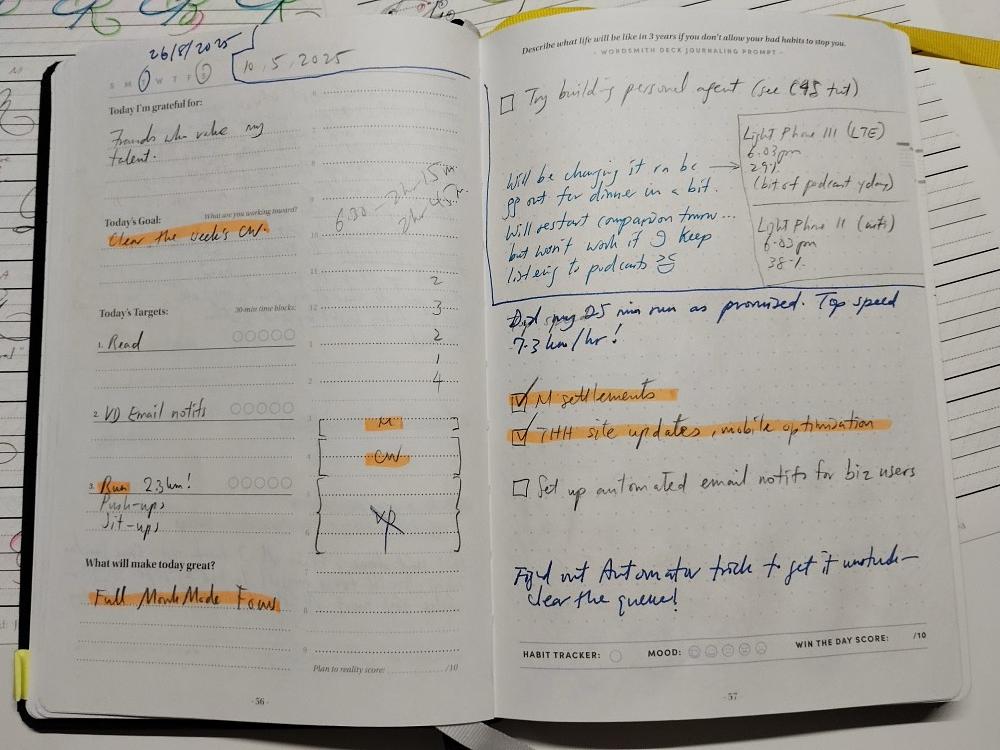 26/8/2025
10.5.2025
S M T W T F S
Today I'm grateful for:
Friends who value my
talent.
6:30 - 2hr 15m
2hr 45m.
Today's Goal: What are you working toward?
Clear the week's CW.
Today's Targets: 30-min time blocks:
1. Read
2. VD Email notifs
3. Run 2.3km!
Push-ups
Sit-ups
What will make today great?
Full Monk Mode Focus
8
9
10
11
2
12
3
1
2
1
2
4
3
M
4
CW
5
6
VD
7
8
9
Plan to reality score: /10
- 56 -
Describe what life will be like in 3 years if you don't allow your bad habits to stop you.
- WORDSMITH DECK JOURNALING PROMPT -
Try building personal agent (see
Light Phone III (LTE)
6.03pm
29%
(bit of podcast yday)
Will be changing it cn be
go out for dinner in a bit.
Will restart comparison tmrw...
but won't work if I keep
listening to podcasts
Light Phone II
6.03pm
38%
Did my 25 min run as promised. Top speed
7.3 km/hr!
M settlements
THH site updates, mobile optimization
Set up automated email notifs for biz users
Find out Automator trick to get it unstuck—
clear the queue!
HABIT TRACKER: MOOD: WIN THE DAY SCORE: /10
- 57 -